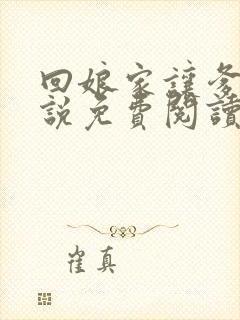 回娘家讓爹
說免費閱讀
崔真